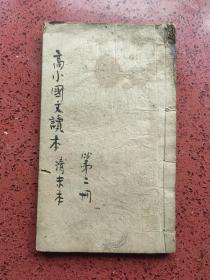 高小國文讀本 清末本
第二冊